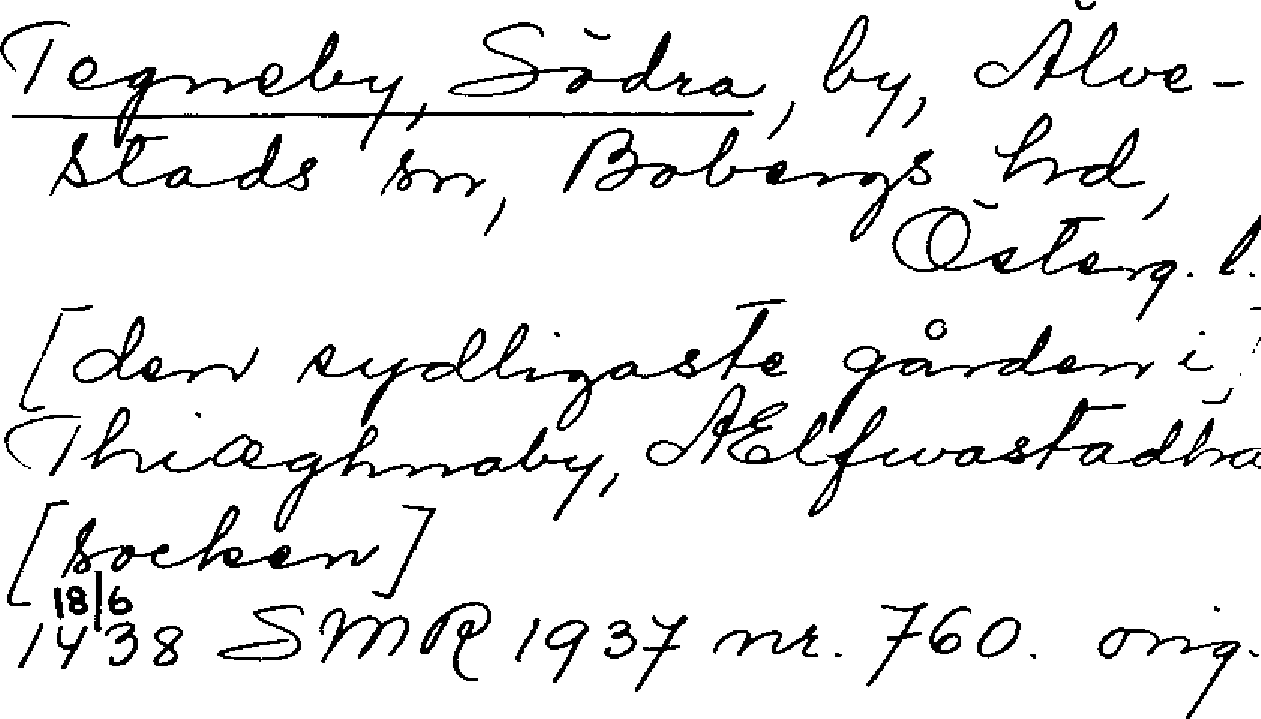 Tegneby, Södra, by, Älve-
stads sn, Bobergs hd,
Österg. l.
[den sydligaste gården i]
Thiæghnaby, Ælfwastadha
[socken]
18/6
1438 SMR 1937 nr. 760. orig.